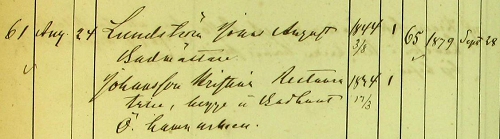 61 Aug. 24 Lundström Jonas August 1844 1 65 1879 Sept 28
Badmästare 3/8
Johansson Kristina 1884 1
trice, begge i Badhuset 17/3
Ö. hamnarmen.